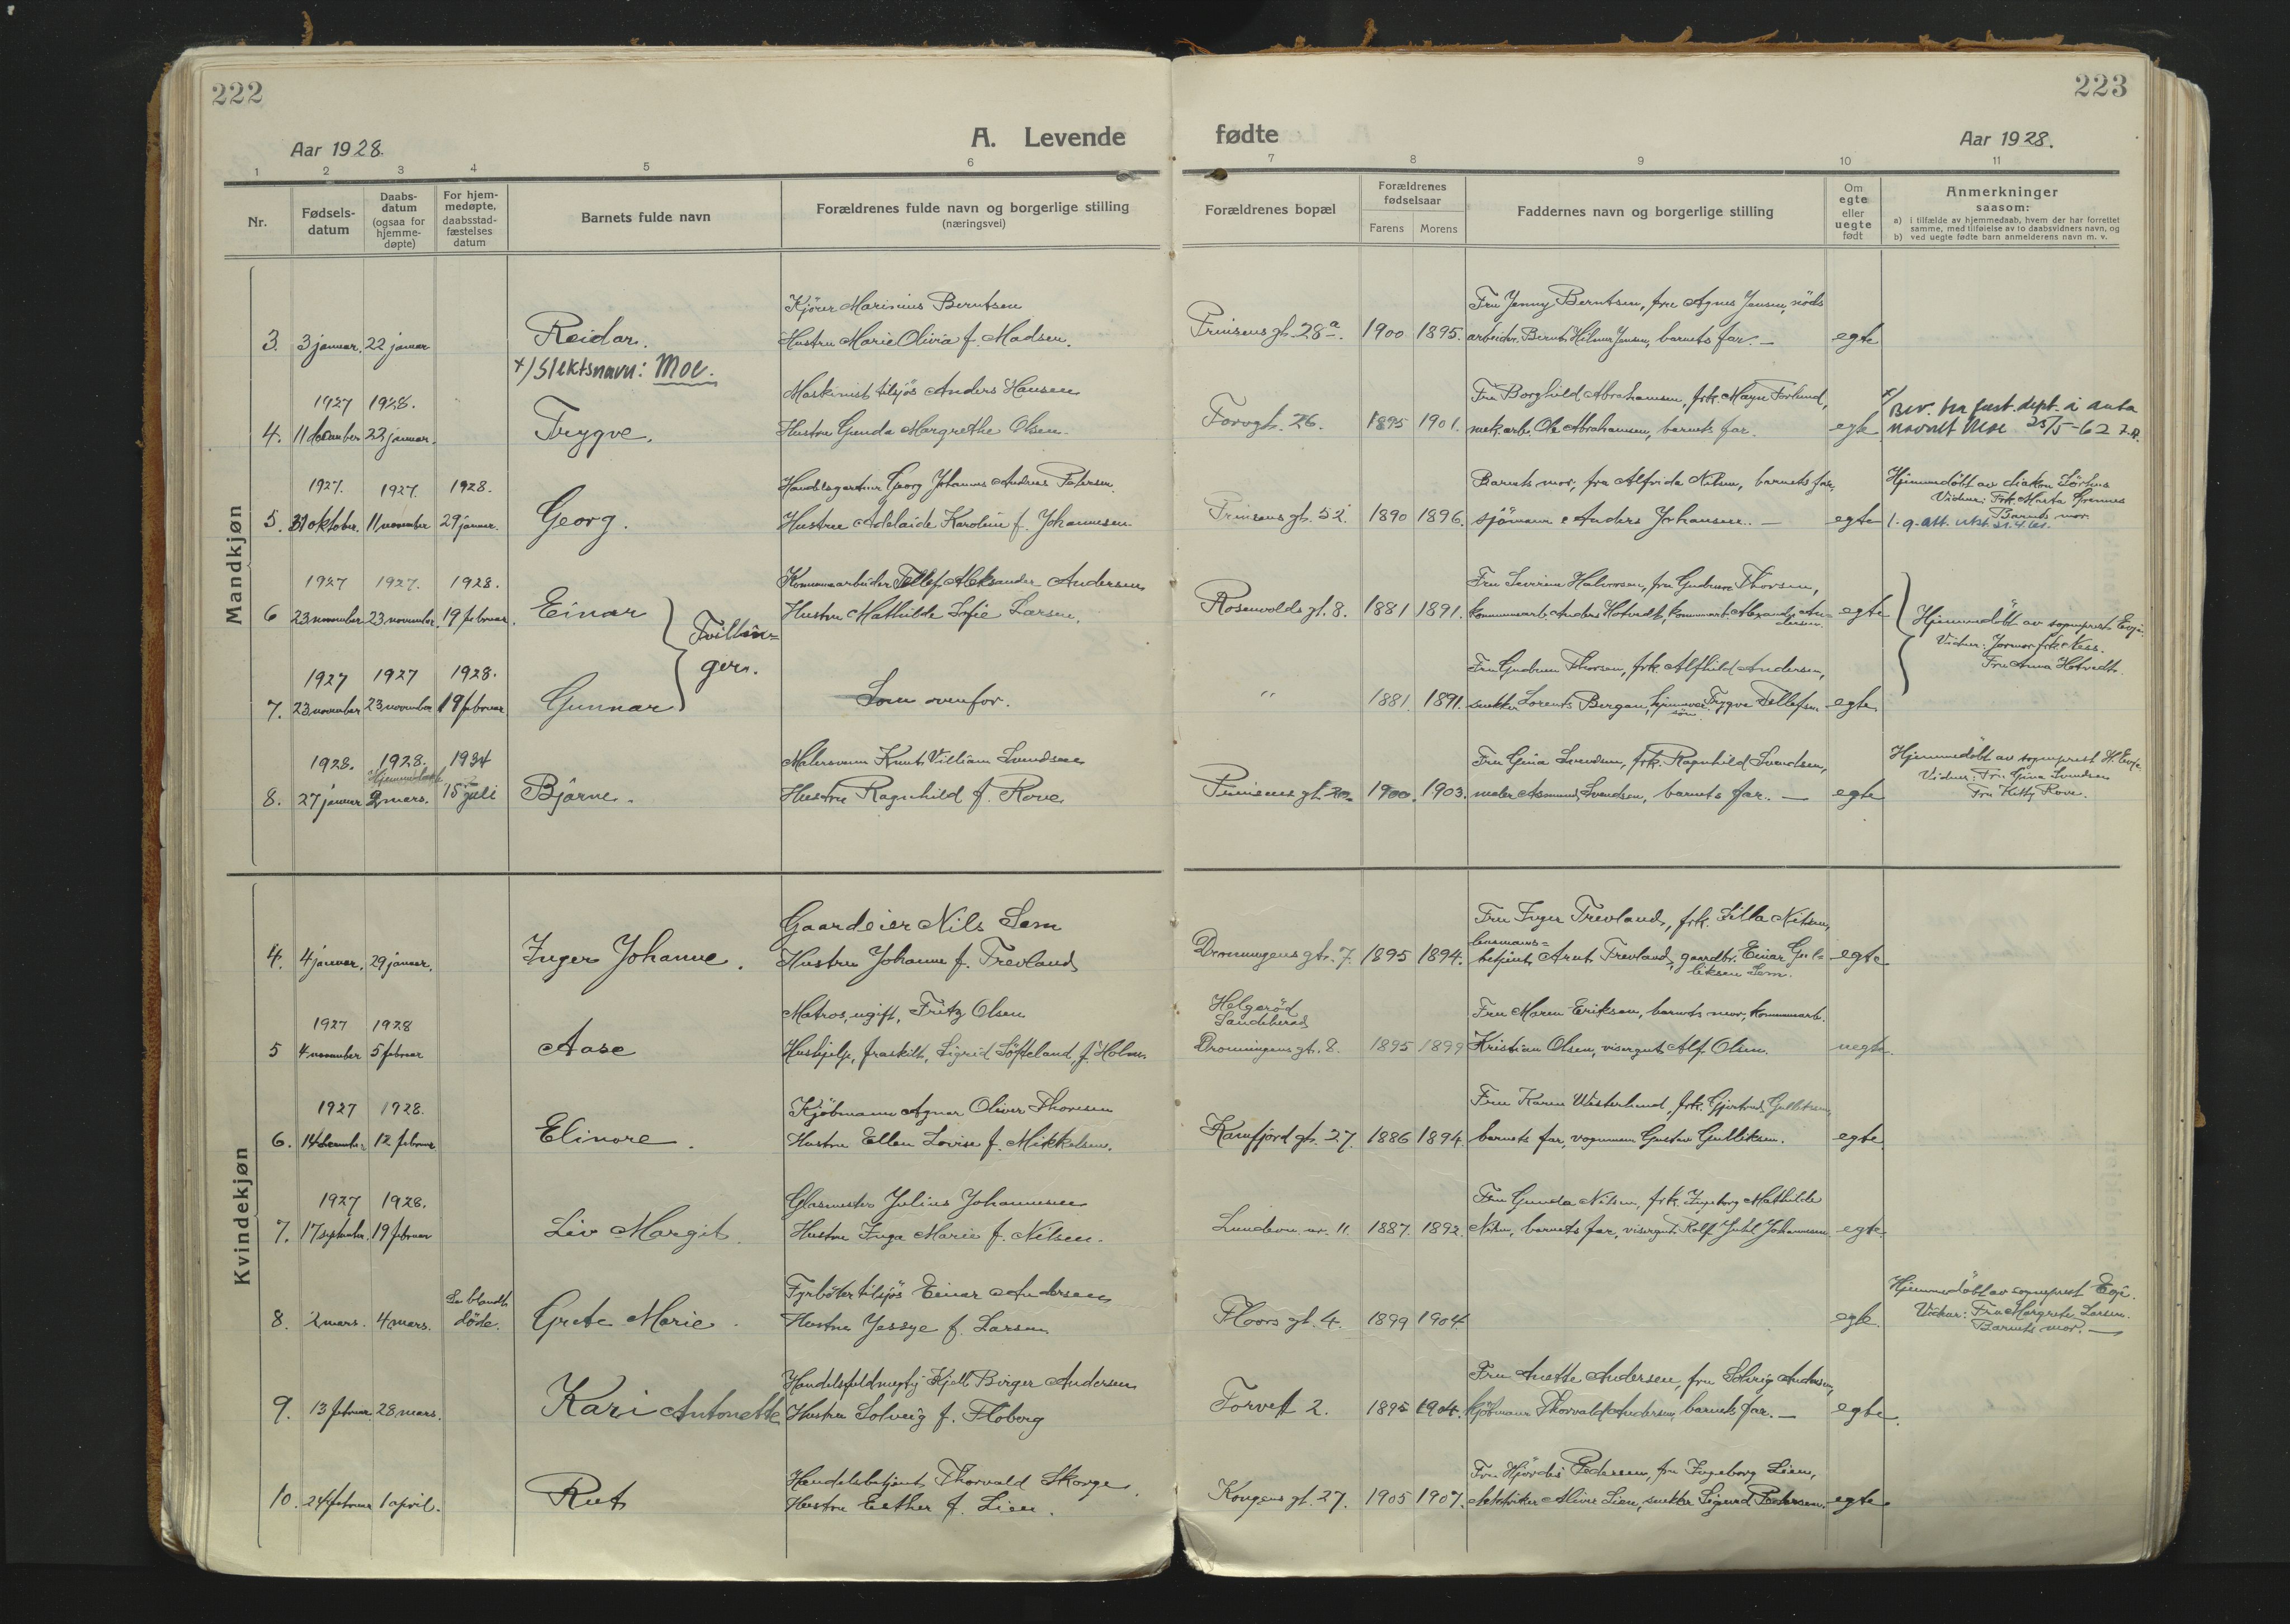 222
Aar 1928.
A. Levende
1 2 3 4 5 6
Nr.
Fødsels-
datum
Daabs-
datum
(ogsaa for
hjemme-
døpte)
For hjem-
medøpte,
daabsstad-
fæstelses
datum
Barnets fulde navn
Forældrenes fulde navn og borgerlige stilling
(næringsvei)
Mandkjøn
Kjörer Marinius Berntsen
3. 3 januar. 22 januar Reidar. Hustru Marie Olivia f. Madsen.
x/ Slektsnavn: Moe.
1927 1928. Maskinist tilsjös Anders Hansen
4. 11 december 22 januar. Trygve. Hustru Gunda Margrethe Olsen.
1927. 1927. 1928. Handelsgartner Georg Johannes Andreas Petersen.
5. 31 oktober. 11 november 29 januar. Georg. Hustru Adelaide Karoline f. Johannesen
1927 1927. 1928. Kommunearbeider Tellef Aleksander Andersen
6 23 november 23 november. 19 februar. Einar Hustru Mathilde Sofie Larsen.
Tvillin=
ger.
1927 1927 1928.
7. 23 november 23 november 19 februar Gunnar Som ovenfor.
1928. 1928. 1934 Malersvenn Knut Villiam Svendsen
Hjemmedöbt
8. 27 januar 2 mars. 15 juli Bjarne. Hustru Ragnhild f. Rove
Kvindekjøn
Gaardeier Nils Sem
4. 4 januar. 29 januar. Inger Johanne. Hustru Johanne f. Trevland
1927 1928 Matros, ugift, Fritz Olsen
5 4 november 5 februar Aase Hushjelp, fraskilt, Sigrid Söfteland, f. Holm
1927 1928. Kjöbmann Agnar Oliver Thoresen
6. 14 december 12 februar Elinore. Hustru Ellen Lovise f. Mikkelsen.
1927 1928. Glasmester Julius Johannessen
7. 17 september. 19 februar Liv Margit. Hustru Inga Marie f. Nilsen.
Se blandt Fyrböter tilsjös Einar Andersen
8. 2 mars. 4 mars. döde. Grete Marie. Hustru Jessye f. Larsen
Handelsfuldmegtig Kjell Birger Andersen
9. 13 februar 28 mars. Kari Antonette Hustru Solveig f. Floberg
Handelsbetjent Thorvald Skorge
10. 24 februar 1 april. Rut Hustru Esther f. Lien.
223
fødte
Aar 1928.
7 8 9 10 11
Forældrenes bopæl
Forældrenes
fødselsaar
Farens Morens
Faddernes navn og borgerlige stilling
Om
egte
eller
uegte
født
Anmerkninger
saasom:
a) i tilfælde av hjemmedaab, hvem der har forrettet
samme, med tilføielse av to daabsvidners navn, og
b) ved uegte fødte barn anmelderens navn m. v.
Fru Jenny Berntsen, fru Agnes Jensen, nöds
Prinsens gt. 28a. 1900 1895. arbeider Bernt Hilmer Jensen, barnets far. — egte
Fru Borghild Abrahamsen, frk. Mayn Förlund,
Torvgt. 26. 1895 1901. mek. arb. Ole Abrahamsen, barnets far. egte
x/
Bev. fra just. dept. å anta
navnet Moe 25/5-62
Barnets mor, fru Alfrida Nilsen, barnets far,
Prinsens gt. 52. 1890 1896. sjömann Anders Johansen. — egte
Hjemmedöbt av diakon Sörhus
Vidner: Frk. Marta Hjemnes
Barnets mor.
Fru Severine Halvorsen, fru Gudrun Thorsen,
Rosenvolds gt. 8. 1881 1891. kommunearb. Anders Hotvedt, kommunearb. Alexander An=
dersen. egte
Hjemmedöbt av sogneprest Evje.
Vidner: Jormor frk. Næss.
Fru Anna Hotvedt.
Fru Gudrun Thorsen, frk. Alfhild Andersen,
" 1881. 1891. snekker Lorents Bergan, hjemmevær. Trygve Tellefsen egte
sön.
Fru Gina Svendsen, frk. Ragnhild Svendsen,
Prinsens gt. 1900. 1903. maler Asmund Svendsen, barnets far. — egte
Hjemmedöbt av sogneprest H. Evje.
Vidner: Fru Gina Svendsen
Fru Kitty Rove.
Fru Inger Trevland, frk. Silla Nilsen,
lensmans=
Dronningens gt. 7. 1895 1894. betjent Arnt Trevland, gaardbr. Einar Gul=
liksen Sem. egte
Helgeröd
Sandeherad
Fru Maren Eriksen, barnets mor, kommunearb.
Dronningens gt. 8. 1895 1899 Kristian Olsen, visergut Alf Olsen. uegte.
Fru Karen Westerlund, frk. Gjertrud Gulliksen,
Kamfjord gt. 27. 1886 1894. barnets far, vognmann Gustav Gulliksen. egte.
Fru Gunda Nilsen, frk. Ingeborg Mathilde
Lundevn. nr. 11. 1887. 1892. Nilsen, barnets far, visergut Rolf Juhl Johannessen. egte.
Floors gt. 4. 1899 1904. egte.
Hjemmedöbt av sogneprest Evje.
Vidner: Fru Margrete Larsen.
Barnets mor. —
Fru Anette Andersen, fru Solveig Andersen,
Torvet 2. 1895 1904. kjöbmann Thorvald Andersen, barnets far. — egte.
Fru Hjördis Pedersen, fru Ingeborg Lien,
Kongens gt. 27. 1905 1907. elektriker Oliver Lien, snekker Sigurd Pedersen. egte